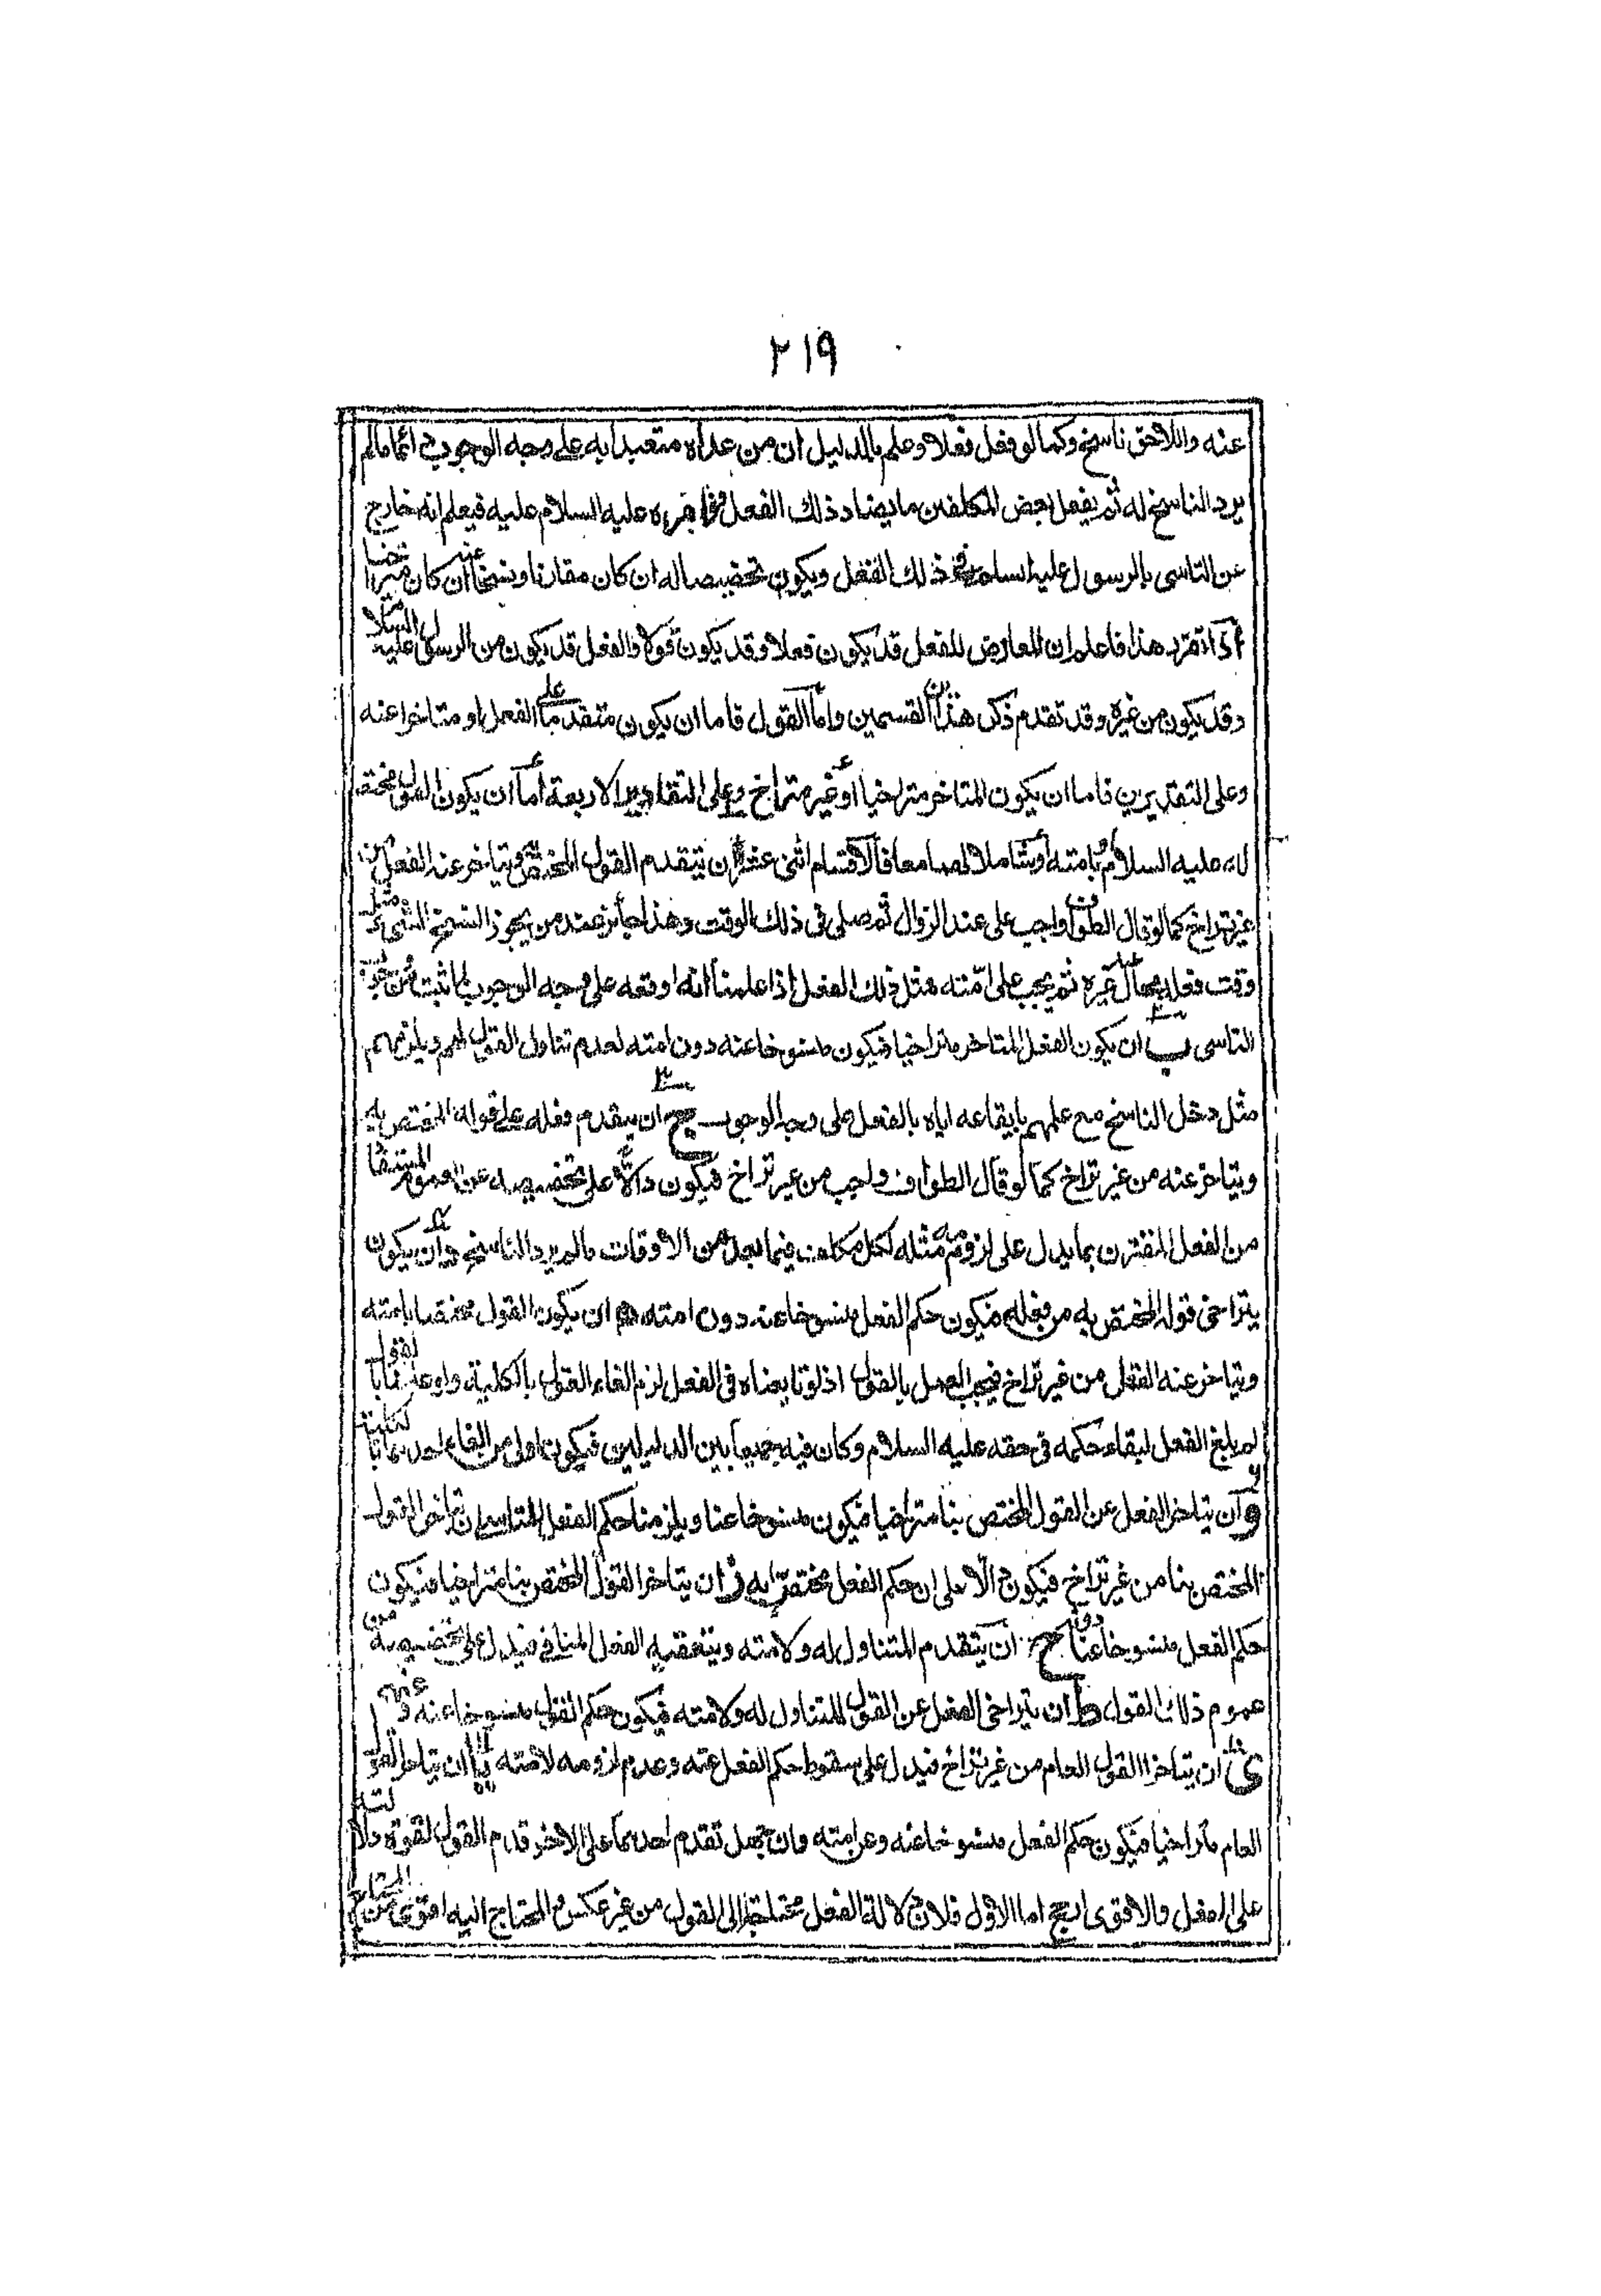 ٢١٩
عنه واللاحق ناسخ وكما لو فعل فعلا وعلم بالدليل ان من عداه متعبد به على وجه الوجوب دائما ما لم
يرد الناسخ له ثم يفعل بعض المكلفين ما يضاد ذلك الفعل عليه السلام عليه فيعلم انه خارج
عن التاسى بالرسول عليه السلم فى ذلك الفعل ويكون تخصيصا له ان كان مقارنا ونسخا عنه ان كان متراخيا
اذا تقرر هذا فاعلم ان المعارض للفعل قد يكون فعلا وقد يكون قولا والفعل قد يكون من الرسول عليه السلام
وقد يكون من غيره وقد تقدم ذكر هذين القسمين واما القول فاما ان يكون متقدما على الفعل او متاخرا عنه
وعلى التقديرين فاما ان يكون المتاخر متراخيا او غير متراخ وعلى التقادير الاربعة اما ان يكون القول مختصا
به عليه السلام او بامته او شاملا لهما معا فالاقسام اثنى عشر ا ان يتقدم القول المختص به ويتاخر عنه الفعل من
غير تراخ كما لو قال الطواف واجب على عند الزوال ثم صلى فى ذلك الوقت وهذا جائز عند من يجوز النسخ الشىء قبل
وقت فعله غيره ثم يجب على امته مثل ذلك الفعل اذا علمنا انه اوقعه على وجه الوجوب لما ثبت من وجوب
التاسى ب ان يكون الفعل المتاخر متراخيا فيكون منسوخا عنه دون امته لعدم تناول القول لهم ويلزمهم
مثل دخل الناسخ مع علمهم بايقاعه اياه بالفعل على وجه الوجوب ج ان يتقدم فعله على قوله المختص به
ويتاخر عنه من غير تراخ كما لو قال الطواف واجب من غير تراخ فيكون دالا على تخصيصه عن العموم المستفاد
من الفعل المقترن بما يدل على لزوم مثله لكل مكلف فيما بعد من الاوقات ما لم يرد الناسخ د ان يكون
يتراخى قوله المختص به من فعله فيكون حكم الفعل منسوخا عنه دون امته ه ان يكون القول مختصا بامته
ويتاخر عنه الفعل من غير تراخ فيجب العمل بالقول اذ لو تابعناه فى الفعل لزم الغاء القول بالكلية ولو عملنا بالقول
لم يلغ الفعل لبقاء حكمه فى حقه عليه السلام وكان فيه جمعا بين الدليلين فيكون اولى من الغاء احدهما بالكلية
و ان يتاخر الفعل عن القول المختص بنا متراخيا فيكون منسوخا عنا ويلزمنا حكم الفعل للتاسى ان تراخى القول
المختص بنا من غير تراخ فيكون دالا على ان حكم الفعل مختص به ز ان يتاخر القول المختص بنا متراخيا فيكون
حكم الفعل منسوخا عنا دونه ح ان يتقدم المتناول له ولامته ويتعقبه الفعل المنافى فيدل على تخصيصه من
عموم ذلك القول ط ان يتراخى الفعل عن القول المتناول له ولامته فيكون حكم القول منسوخا عنه وعنهم
ى ان يتاخر القول العام من غير تراخ فيدل على سقوط حكم الفعل عنه وعدم لزومه لامته يا ان يتاخر القول
العام متراخيا فيكون حكم الفعل منسوخا عنه وعن امته وان جهل تقدم احدهما على الاخر قدم القول لقوة دلالته
على الفعل والاقوى ارجح اما الاول فلان دلالة الفعل محتاجة الى القول من غير عكس والمحتاج اليه اقوى من المحتاج